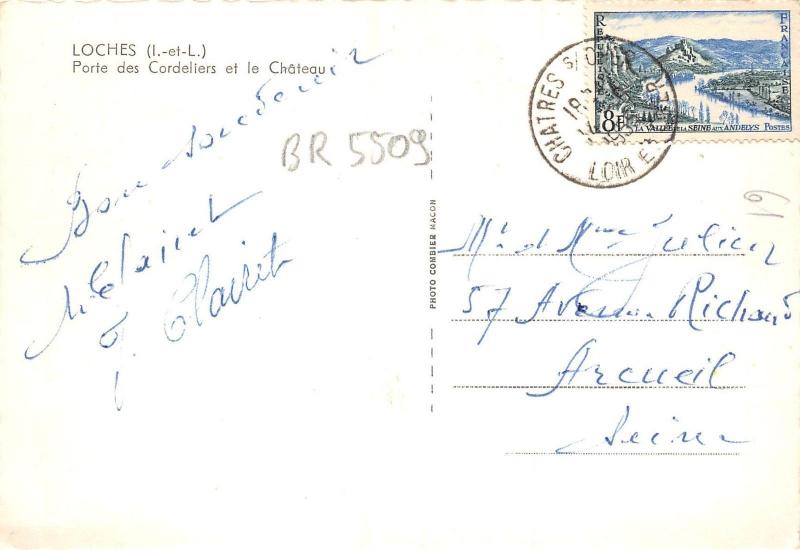 LOCHES (I.-et-L.)
Porte des Cordeliers et le Château
Bon souvenir
Clairet
J. Clairet
BR 5509
PHOTO COMBIER MACON
REPUBLIQUE FRANÇAISE
8F
LA VALLÉE DE LA SEINE AUX ANDELYS POSTES
CHATRES S/ CHER
LOIR ET CHER
61
Mr. et Mme Julien
57 Avenue Richaud
Arcueil
Seine